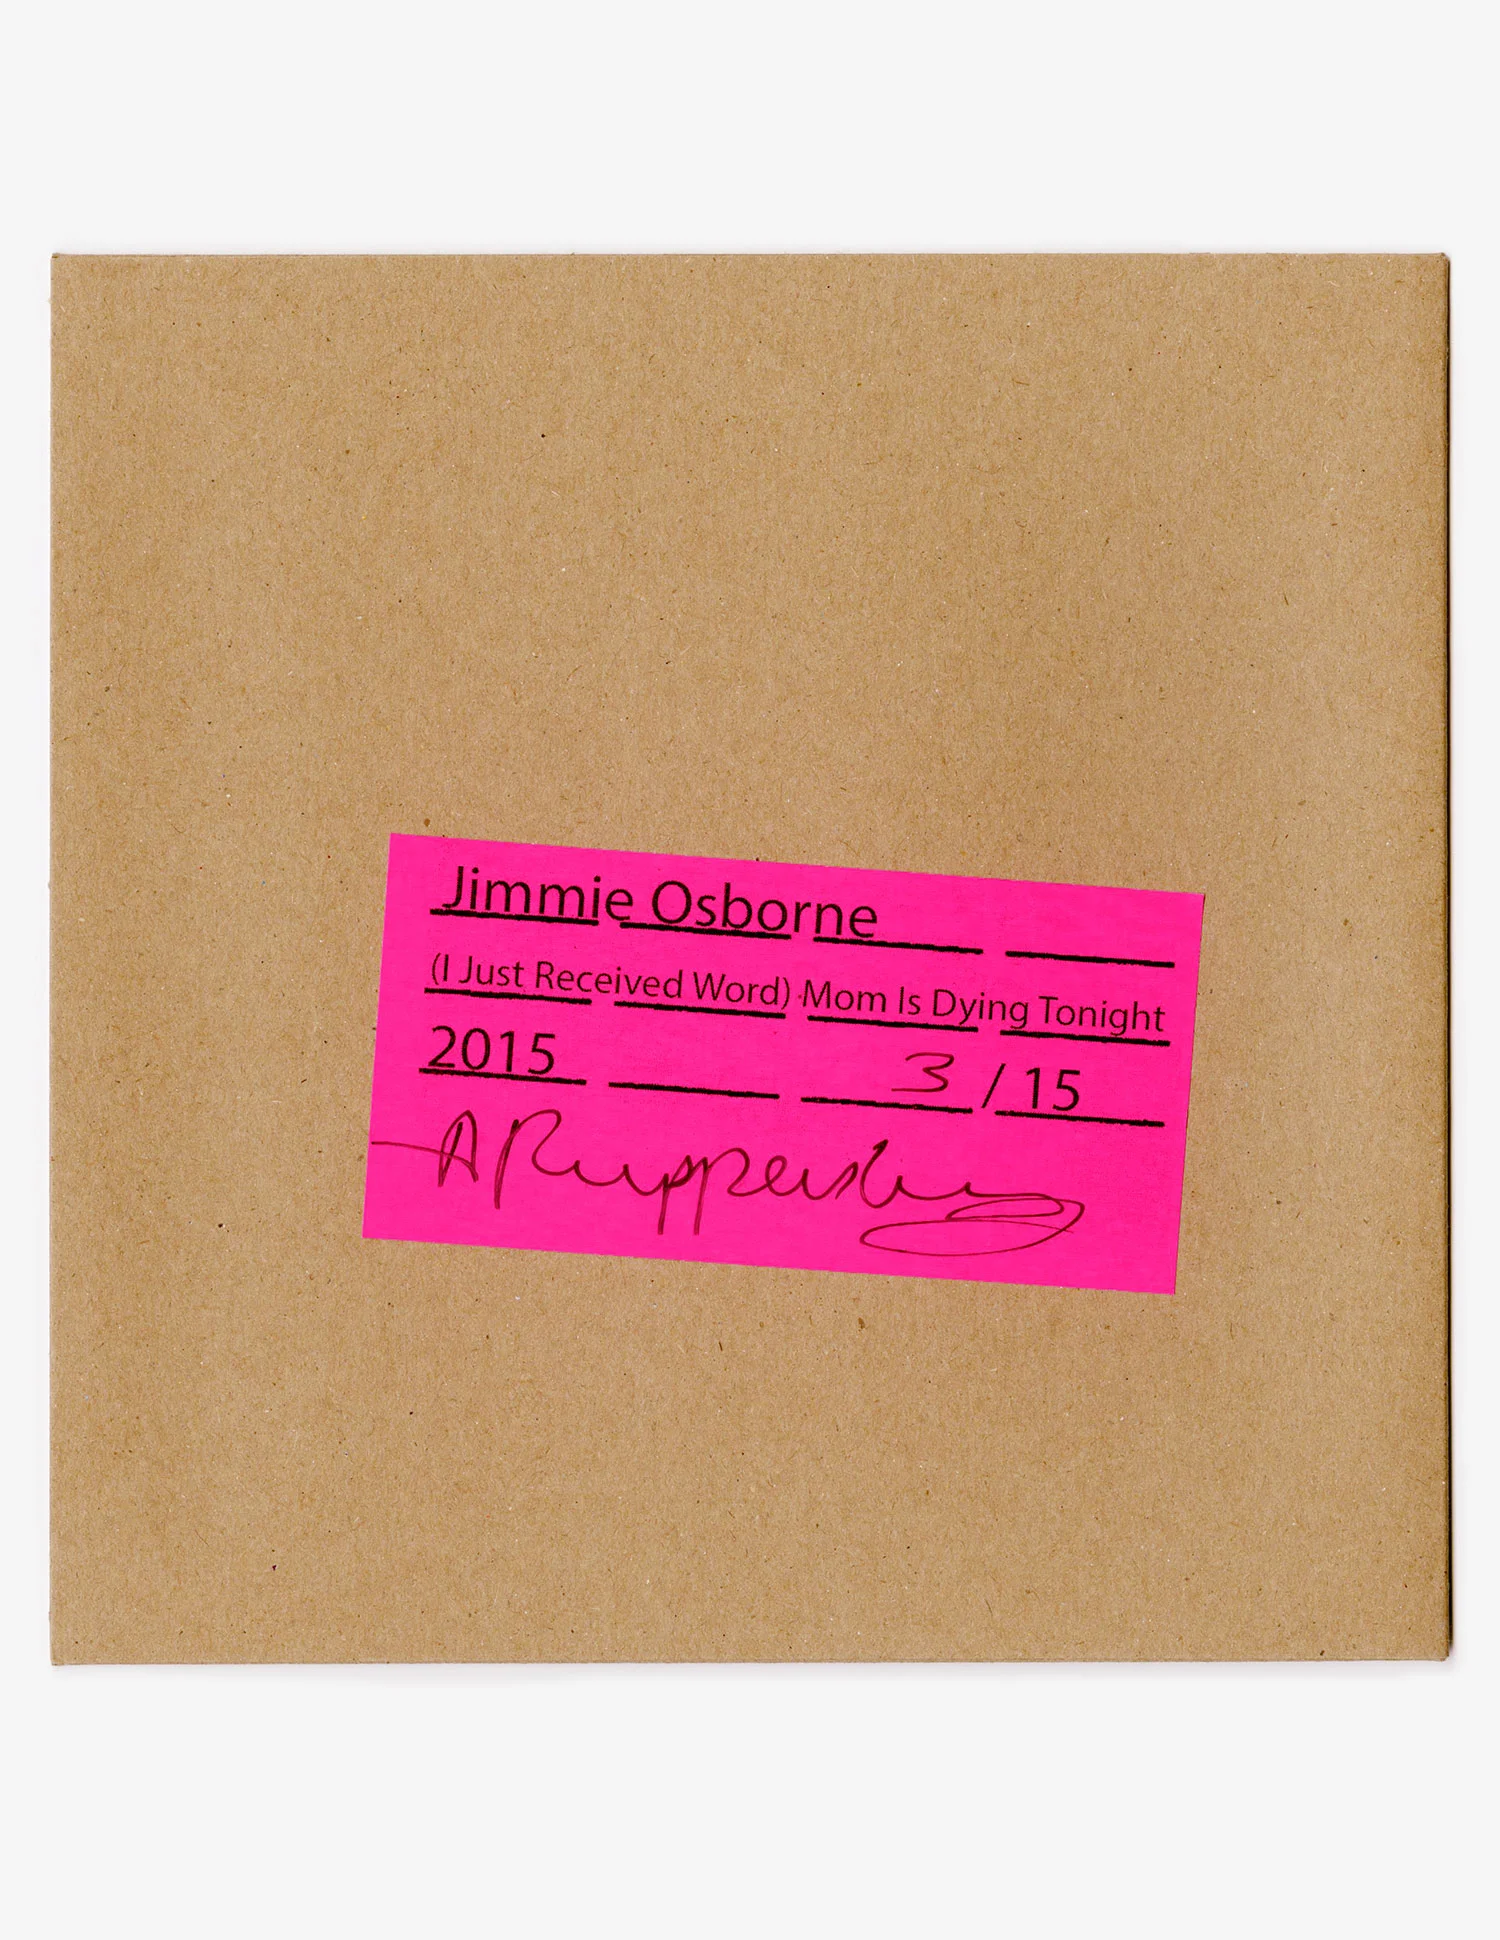 Jimmie Osborne
(I Just Received Word) Mom Is Dying Tonight
2015 3 / 15
A Ruppersberg